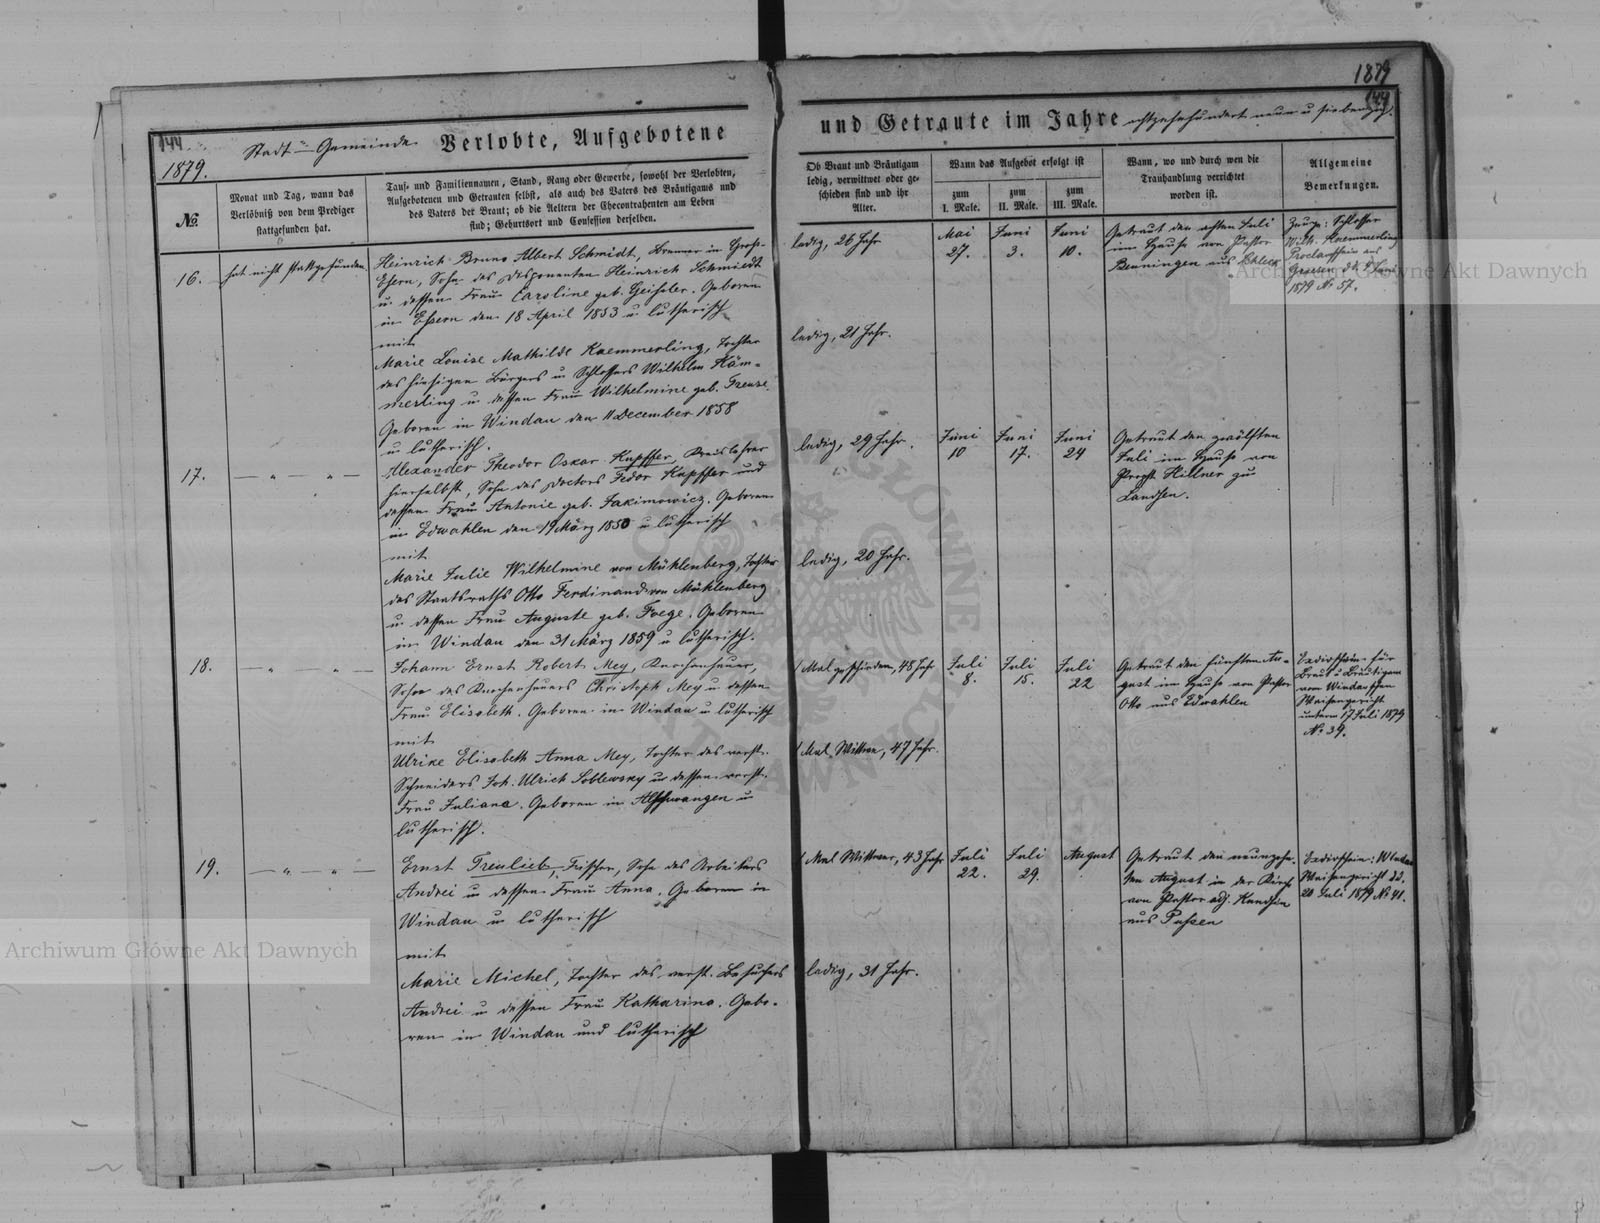 144
1879.
Stadt-Gemeinde Verlobte, Aufgebotene
№
Monat und Tag, wann das
Verlöbniß von dem Prediger
stattgefunden hat.
Tauf- und Familiennamen, Stand, Rang oder Gewerbe, sowohl der Verlobten,
Aufgebotenen und Getrauten selbst, als auch des Vaters des Bräutigams und
des Vaters der Braut; ob die Aeltern der Ehecontrahenten am Leben
sind; Geburtsort und Confession derselben.
16.
hat nicht stattgefunden.
Heinrich Bruno Albert Schmidt, Brenner in Groß-
Essern, Sohn des Disponenten Heinrich Schmiedt
u. dessen Frau Caroline geb. Geissler. Geboren
in Essern den 18 April 1853 u lutherisch
mit
Marie Louise Mathilde Kaemmerling, Tochter
des hiesigen Bürgers u Schlossers Wilhelm Käm-
merling u dessen Frau Wilhelmine geb. Freuse.
Geboren in Windau den 11 December 1858
u lutherisch.
17.
— „ — „ —
Alexander Theodor Oskar Kupffer, Kreislehrer
hierselbst, Sohn des Doctors Fedor Kupffer und
dessen Frau Antonie geb. Jakimowicz. Geboren
in Edwahlen den 19 März 1850 u lutherisch
mit
Marie Julie Wilhelmine von Mühlenberg, Tochter
des Staatsraths Otto Ferdinand von Mühlenberg
u. dessen Frau Auguste geb. Foege. Geboren
in Windau den 31 März 1859 u lutherisch.
18.
— „ — „ —
Johann Ernst Robert Mey, Knochenhauer,
Sohn des Knochenhauers Christoph Mey u dessen
Frau Elisabeth. Geboren in Windau u lutherisch
mit
Ulrike Elisabeth Anna Mey, Tochter des verst.
Schneiders Joh. Ulrich Soblewsky u dessen verst.
Frau Juliana. Geboren in Alschwangen u
lutherisch.
19.
— „ — „ —
Ernst Treulieb, Fischer, Sohn des Arbeiters
Andrei u dessen Frau Anna. Geboren in
Windau u lutherisch
mit
Marie Michel, Tochter des verst. Besuchers
Andrei u dessen Frau Katharina. Gebo-
ren in Windau und lutherisch
1879
144
und Getraute im Jahre achtzehnhundert neun u siebenzig.
Ob Braut und Bräutigam
ledig, verwittwet oder ge-
schieden sind und ihr
Alter.
Wann das Aufgebot erfolgt ist
zum
I. Male.
zum
II. Male.
zum
III. Male.
Wann, wo und durch wen die
Trauhandlung verrichtet
worden ist.
Allgemeine
Bemerkungen.
ledig, 26 Jahr
Mai
27.
Juni
3.
Juni
10.
Getraut den ersten Juli
im Hause von Pastor
Benningen aus
Zeuge: Schlosser
Wilh. Kaemmerling
1879 № 57.
ledig, 21 Jahr.
ledig, 29 Jahr.
Juni
10
Juni
17.
Juni
24
Getraut den zwölften
Juli im Hause von
Propst Hillner zu
Landsen.
ledig, 20 Jahr.
1 Mal geschieden, 48 Jahr
Juli
8.
Juli
15.
Juli
22
Getraut den fünften Au-
gust im Hause von Pastor
Otto aus Edwahlen
Exdivschein für
Braut u Bräutigam
vom Windauschen
Waisengericht
unterm 17 Juli 1879
№ 39.
1 Mal Wittwe, 47 Jahr.
1 Mal Wittwer, 43 Jahr
Juli
22.
Juli
29.
August
Getraut den neunzehn-
ten August in der Kirche
von Pastor adj. Kundsin
aus Pussen
Exdivschein: Windau
Waisengericht dd.
20 Juli 1879 № 41.
ledig, 31 Jahr.
Archiwum Główne Akt Dawnych
Archiwum Główne Akt Dawnych